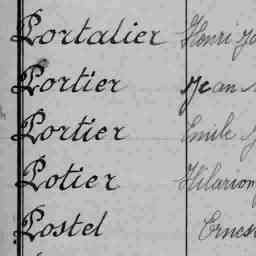 Portalier Henri
Portier Jean
Portier Emile
Potier Hilarion
Postel Ernest